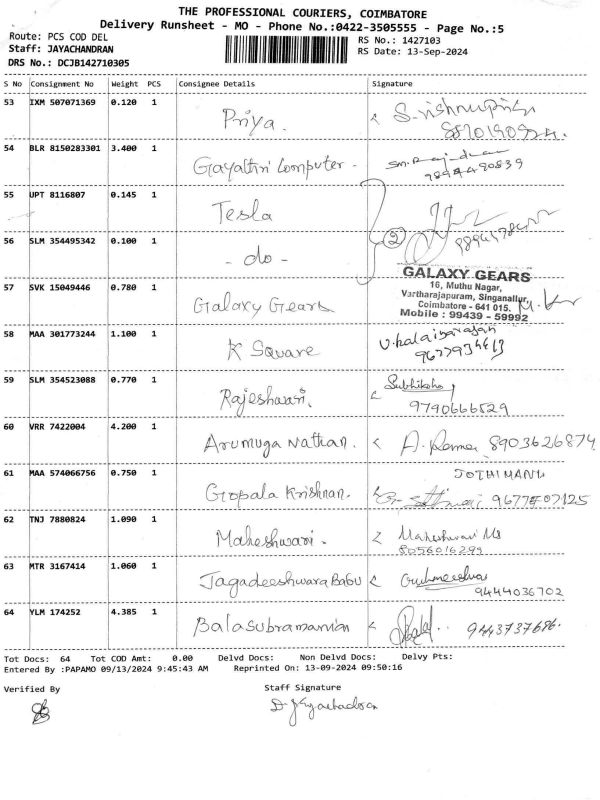 THE PROFESSIONAL COURIERS, COIMBATORE
Delivery Runsheet - MO - Phone No.:0422-3505555 - Page No.:5
Route: PCS COD DEL RS No.: 1427103
Staff: JAYACHANDRAN RS Date: 13-Sep-2024
DRS No.: DCJB142710305
S No Consignment No Weight PCS Consignee Details Signature
53 IXM 507071369 0.120 1 Priya.
54 BLR 8150283301 3.400 1 Gayathri Computer -
9894490839
55 UPT 8116807 0.145 1 Tesla
56 SLM 354495342 0.100 1 - do - 2
57 SVK 15049446 0.780 1 Galaxy Gears
GALAXY GEARS
16, Muthu Nagar,
Vartharajapuram, Singanallur,
Coimbatore - 641 015.
Mobile : 99439 - 59992
58 MAA 301773244 1.100 1 K Square
59 SLM 354523088 0.770 1 Rajeshwari.
9790666529
60 VRR 7422004 4.200 1 Arumuga Nathan. 8903626874
61 MAA 574066756 0.750 1 Gopala Krishnan. JOTHIMANI
9677507125
62 TNJ 7880824 1.090 1 Maheshwari. Maheshwari Ms
8056016299
63 MTR 3167414 1.060 1 Jagadeeshwara Babu
9444036702
64 YLM 174252 4.385 1 Balasubramanian 9443737686.
Tot Docs: 64 Tot COD Amt: 0.00 Delvd Docs: Non Delvd Docs: Delvy Pts:
Entered By :PAPAMO 09/13/2024 9:45:43 AM Reprinted On: 13-09-2024 09:50:16
Verified By Staff Signature
D. Jayachadran